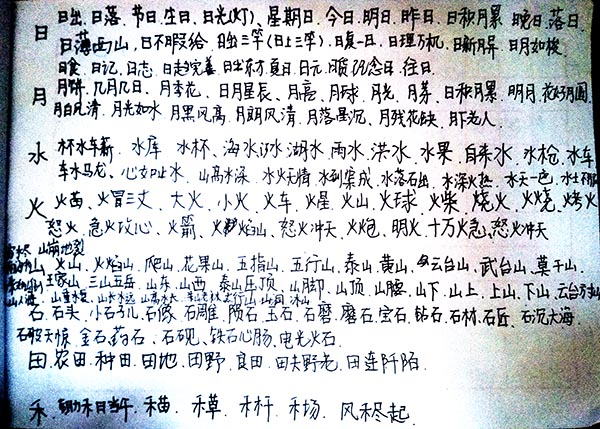 日 日出、日落、节日、生日、日光(灯)、星期日、今日、明日、昨日、日积月累 晚日、落日
日薄西山, 日不暇给 日出三竿(日上三竿)、日复一日、日理万机、日新月异 日月如梭
日食、日记、日志、日趋完善 日出东方 夏日、日元、纪念日、往日
月 月饼、几月几日、月季花、日月星长、月亮、月球、月光、月芽、日积月累、明月、花好月圆
月白风清、月光如水、月黑风高、月朗风清、月落星沉、月残花缺、月下老人
水 杯水车薪、水库、水杯、海水、河水、湖水、雨水、洪水、水果、自来水、水枪、水车
车水马龙、心如止水、山高水深、水火无情、水到渠成、水落石出、水深火热、水天一色、水土
火 火苗、火冒三丈、大火、小火、火车、火星、火山、火球、火柴、烧火、火烧、烤火
怒火、急火攻心、火箭、火焰山、怒火冲天、火炮、明火、十万火急、怒火冲天
山崩地裂
山、火山、火焰山、爬山、花果山、五指山、五行山、泰山、黄山、云台山、武台山、莫干山、
三山五岳、山东、山西、泰山压顶、山脚、山顶、山腰、山下、山上、上山、下山、云台
石、石头、小石子儿、石像、石雕、陨石、玉石、石磨、磨石、宝石、钻石、石林、石匠、石沉大海、
石破天惊、金石、药石、石砚、铁石心肠、电光火石
田、农田、种田、田地、田野、良田、田夫野老、田连阡陌、
禾 锄禾日当午、禾苗、禾草、禾杆、禾场、风禾尽起、